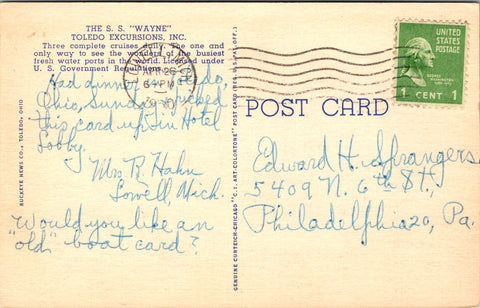 THE S. S. "WAYNE"
TOLEDO EXCURSIONS, INC.
Three complete cruises daily. The one and
only way to see the wonders of the busiest
fresh water ports in the world. Licensed under
U. S. Government Regulations.
Had dinner in Toledo,
Ohio, Sunday & picked
this card up in Hotel
Lobby.
Mrs R. Hahn
Lowell, Mich.
Would you like an
"old" boat card?
BUCKEYE NEWS CO., TOLEDO, OHIO
GENUINE CURTEICH-CHICAGO "C.T. ART-COLORTONE" POST CARD (REG. U.S. PAT. OFF.)
APR 26
PM
POST CARD
UNITED
STATES
POSTAGE
GEORGE
WASHINGTON
1 CENT 1
Edward H. Sprangers
5409 N. 6th St.,
Philadelphia 20, Pa.